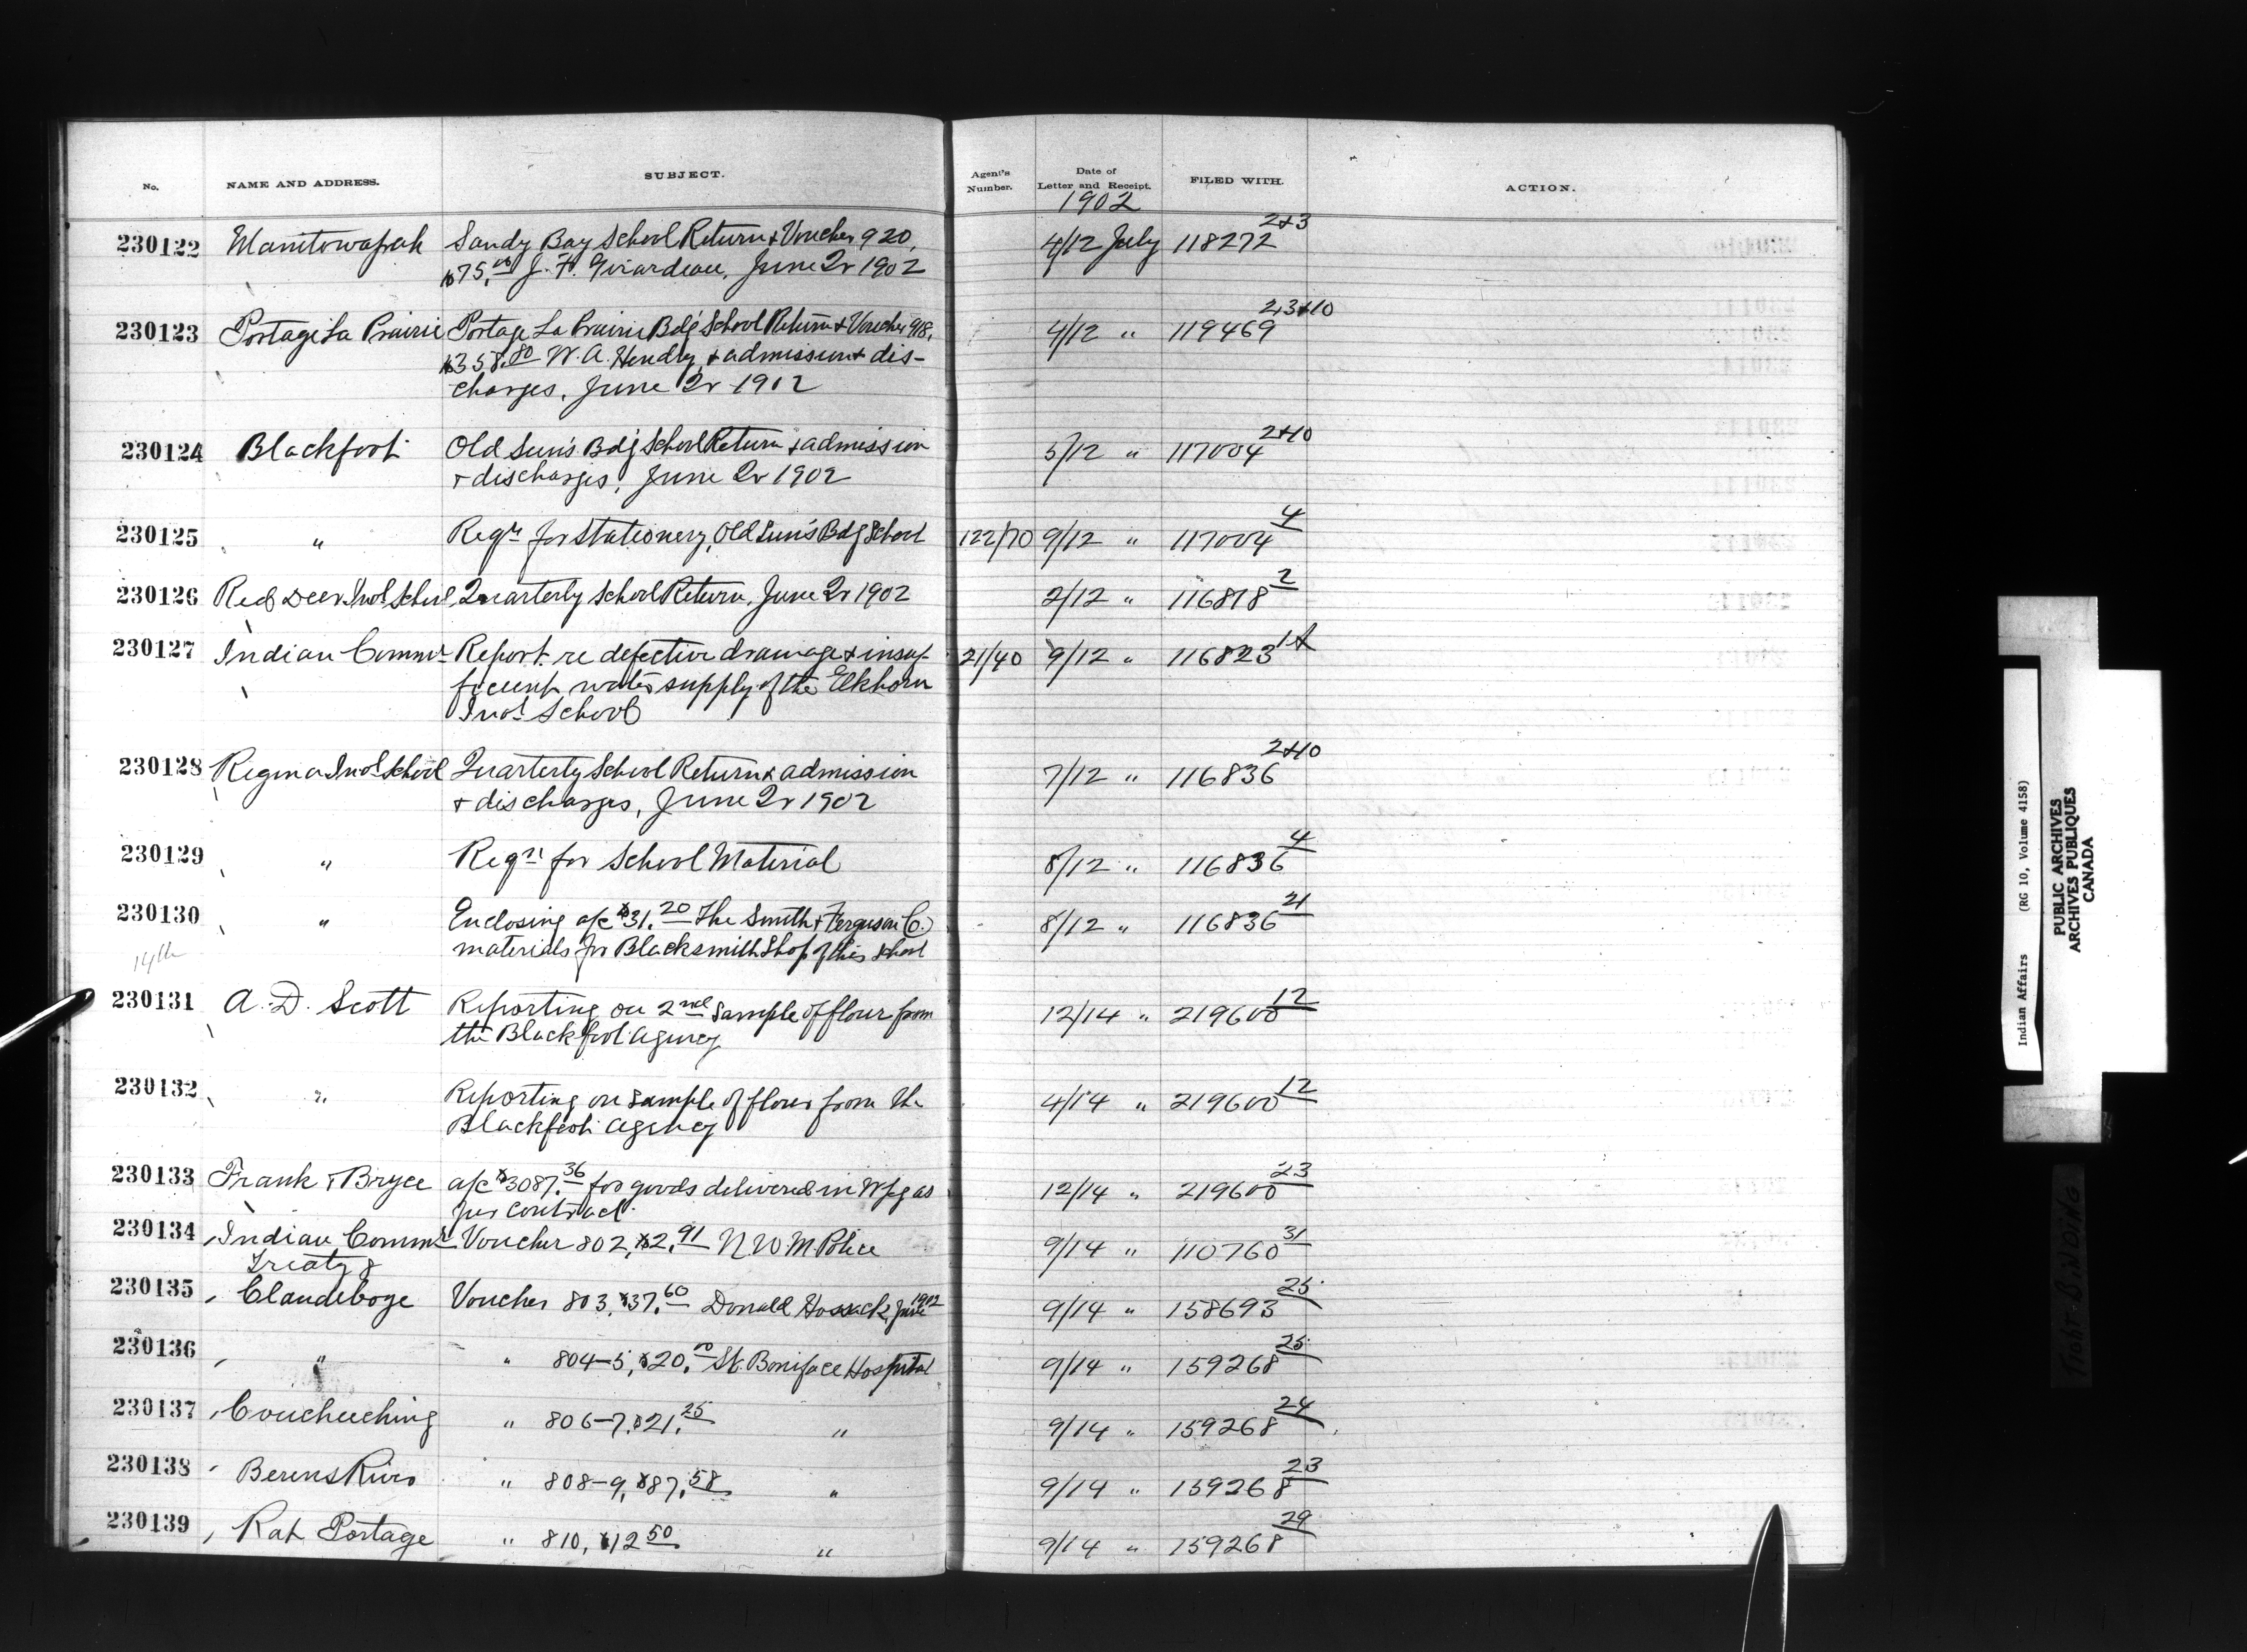 No. NAME AND ADDRESS. SUBJECT. Agent's Number. Date of Letter and Receipt. FILED WITH. ACTION.
1902
230122 Manitowapah Sandy Bay School Return & Voucher 920, 4/12 July 118272 2&3
$75.00 J. H. Girardeau, June Qr 1902
230123 Portage La Prairie Portage La Prairie Bdg School Return & Voucher 918, 4/12 " 119469 2,3&10
$358.80 W. A. Hendry, & admission & dis-
charges, June Qr 1902
230124 Blackfoot Old Sun's Bdg School Return & admission 5/12 " 117004 2&10
& discharges, June Qr 1902
230125 " Reqn for Stationery, Old Sun's Bdg School 122/70 9/12 " 117004 4
230126 Red Deer Indl School Quarterly School Return, June Qr 1902 2/12 " 116818 2
230127 Indian Commr Report re defective drainage & insuf- 21/40 9/12 " 116823 1A
ficient water supply of the Elkhorn
Indl School
230128 Regina Indl School Quarterly School Return & admission 7/12 " 116836 2&10
& discharges, June Qr 1902
230129 " Reqn for School Material 8/12 " 116836 4
230130 " Enclosing a/c $31.20 The Smith & Ferguson Co. 8/12 " 116836 21
materials for Blacksmith Shop of this school
14th
230131 A. D. Scott Reporting on 2nd sample of flour from 12/14 " 219600 12
the Blackfoot Agency
230132 " Reporting on sample of flour from the 4/14 " 219600 12
Blackfoot Agency
230133 Frank & Bryce a/c $3087.36 for goods delivered in Wpg as 12/14 " 219600 23
per contract.
230134 Indian Commr Voucher 802, $2.91 N W M Police 9/14 " 110760 31
Treaty 8
230135 Clandeboye Voucher 803, $37.60 Donald Hossack, June 1902 9/14 " 158693 25
230136 " " 804-5, $20.00 St. Boniface Hospital 9/14 " 159268 25
230137 Coucheeching " 806-7, $21.25 " 9/14 " 159268 24
230138 Berens River " 808-9, $87.58 " 9/14 " 159268 23
230139 Rat Portage " 810, $12.50 " 9/14 " 159268 29
Indian Affairs (RG 10, Volume 4158)
PUBLIC ARCHIVES
ARCHIVES PUBLIQUES
CANADA
TIGHT BINDING